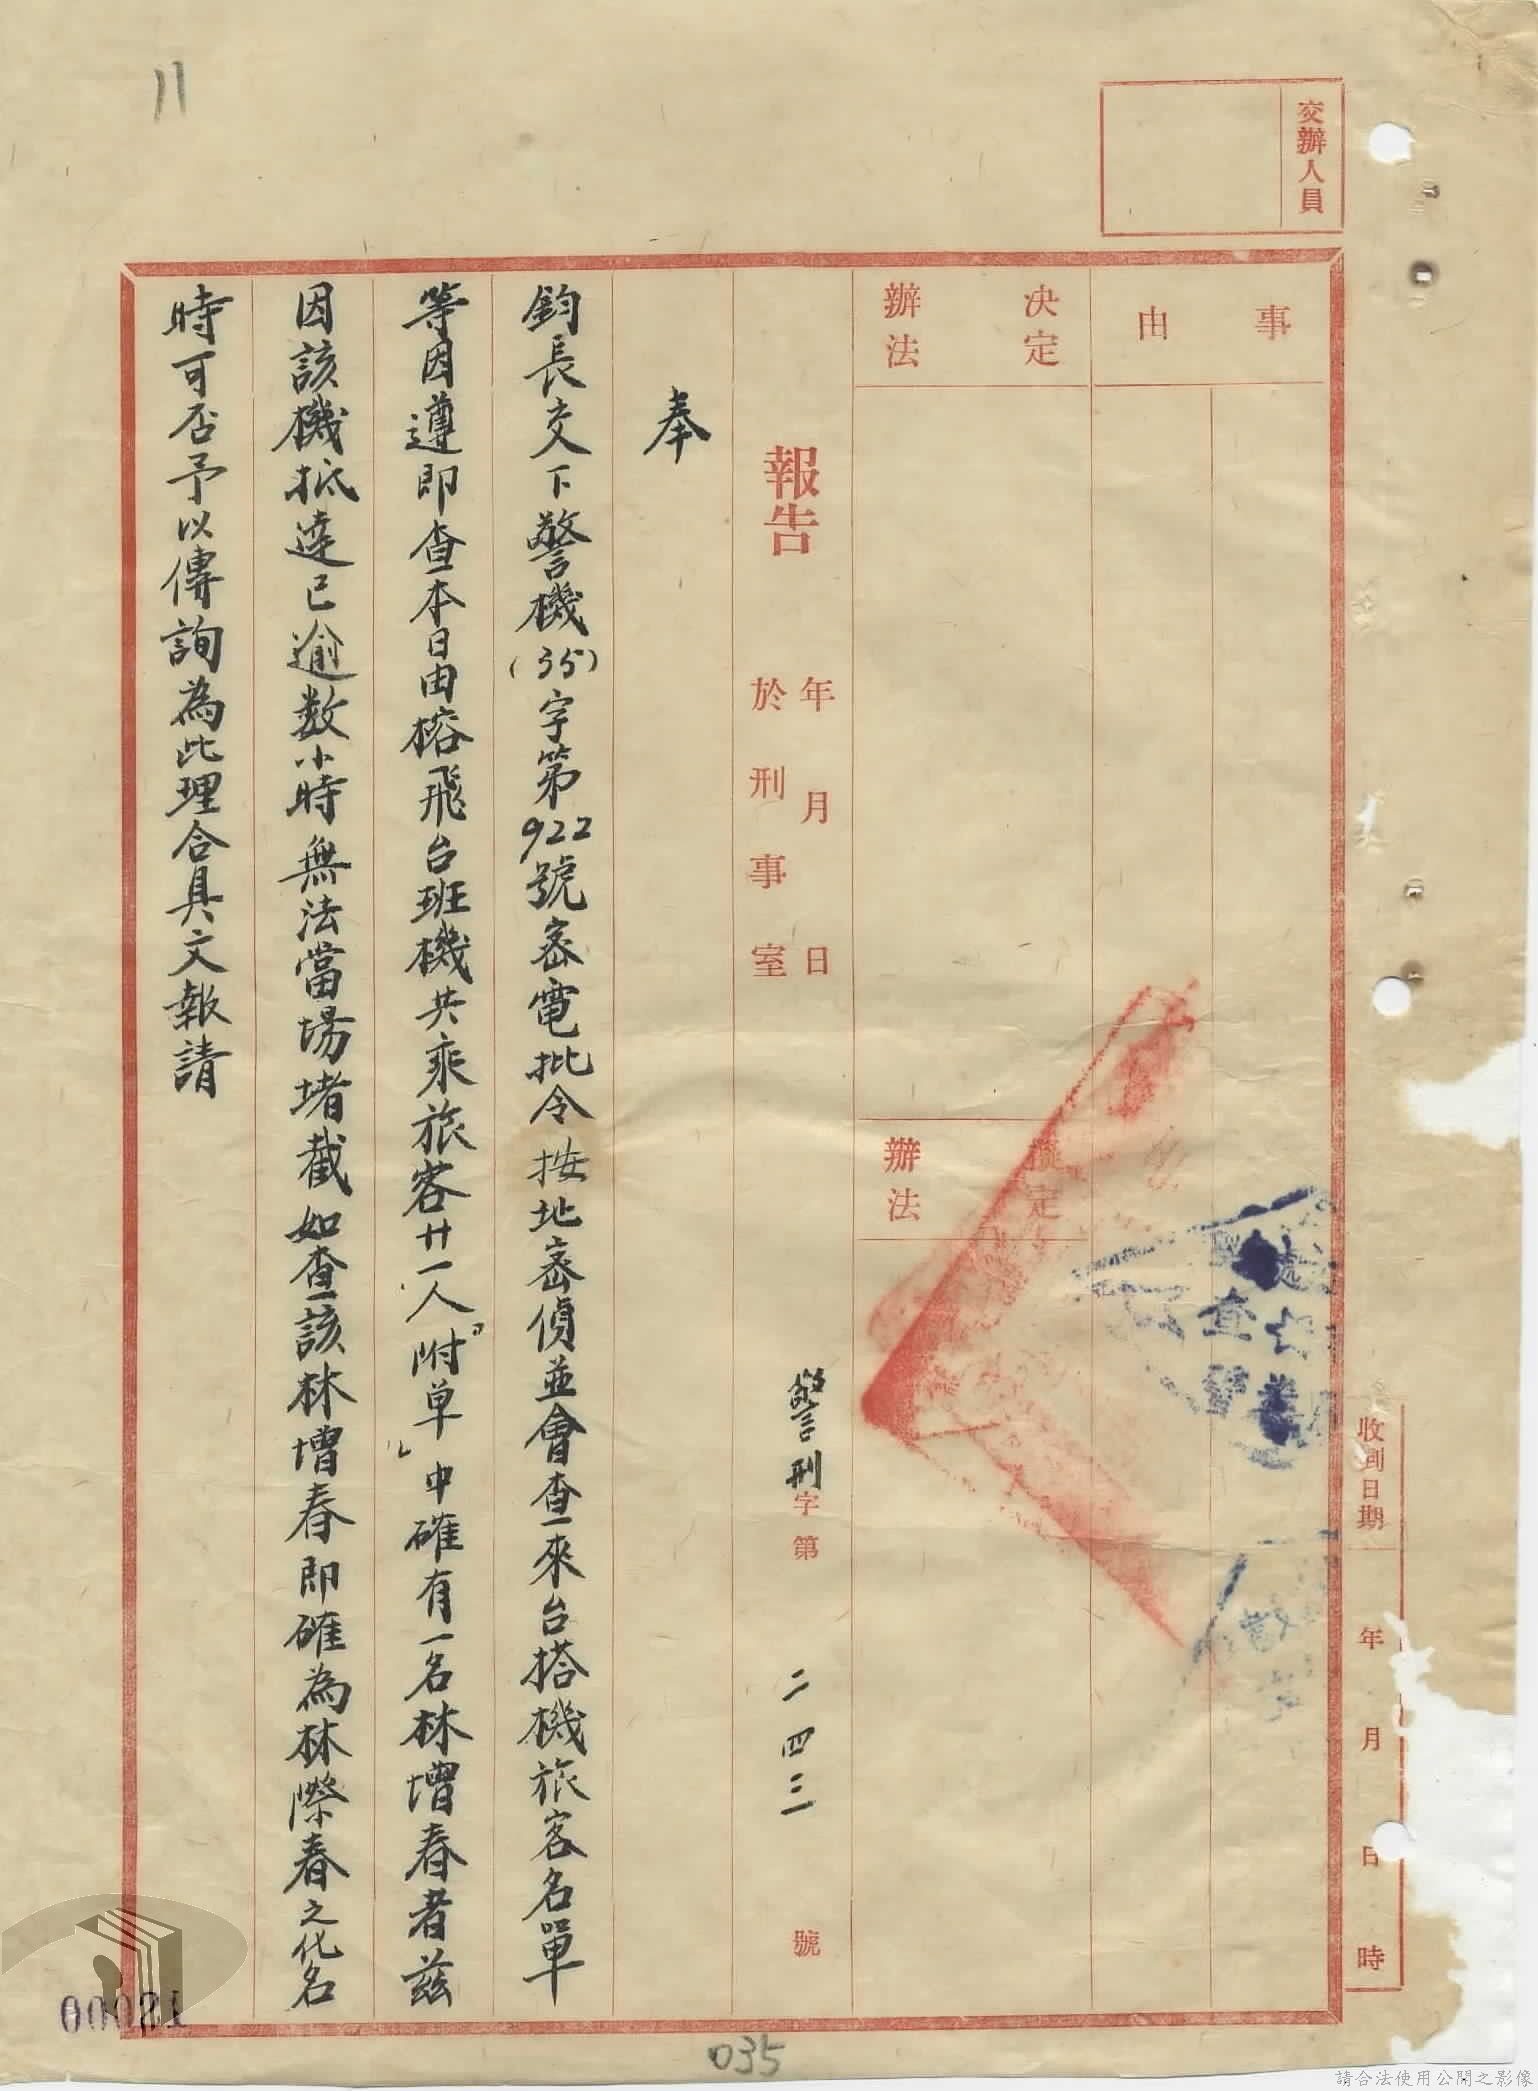 11
交辦人員
事由
決定辦法
擬定辦法
收到日期 年 月 日 時
報告 年 月 日 於刑事室 警刑字第二四三號
奉
鈞長交下警機(35)字第922號密電批令按地密偵並會查來台搭機旅客名單
等因遵即查本日由榕飛台班機共乘旅客廿一人『附單』中確有一名林增春者茲
因該機抵達已逾数小時無法當場堵截如查該林增春即確為林際春之化名
時可否予以傳詢為此理合具文報請
00021
035
請合法使用公開之影像